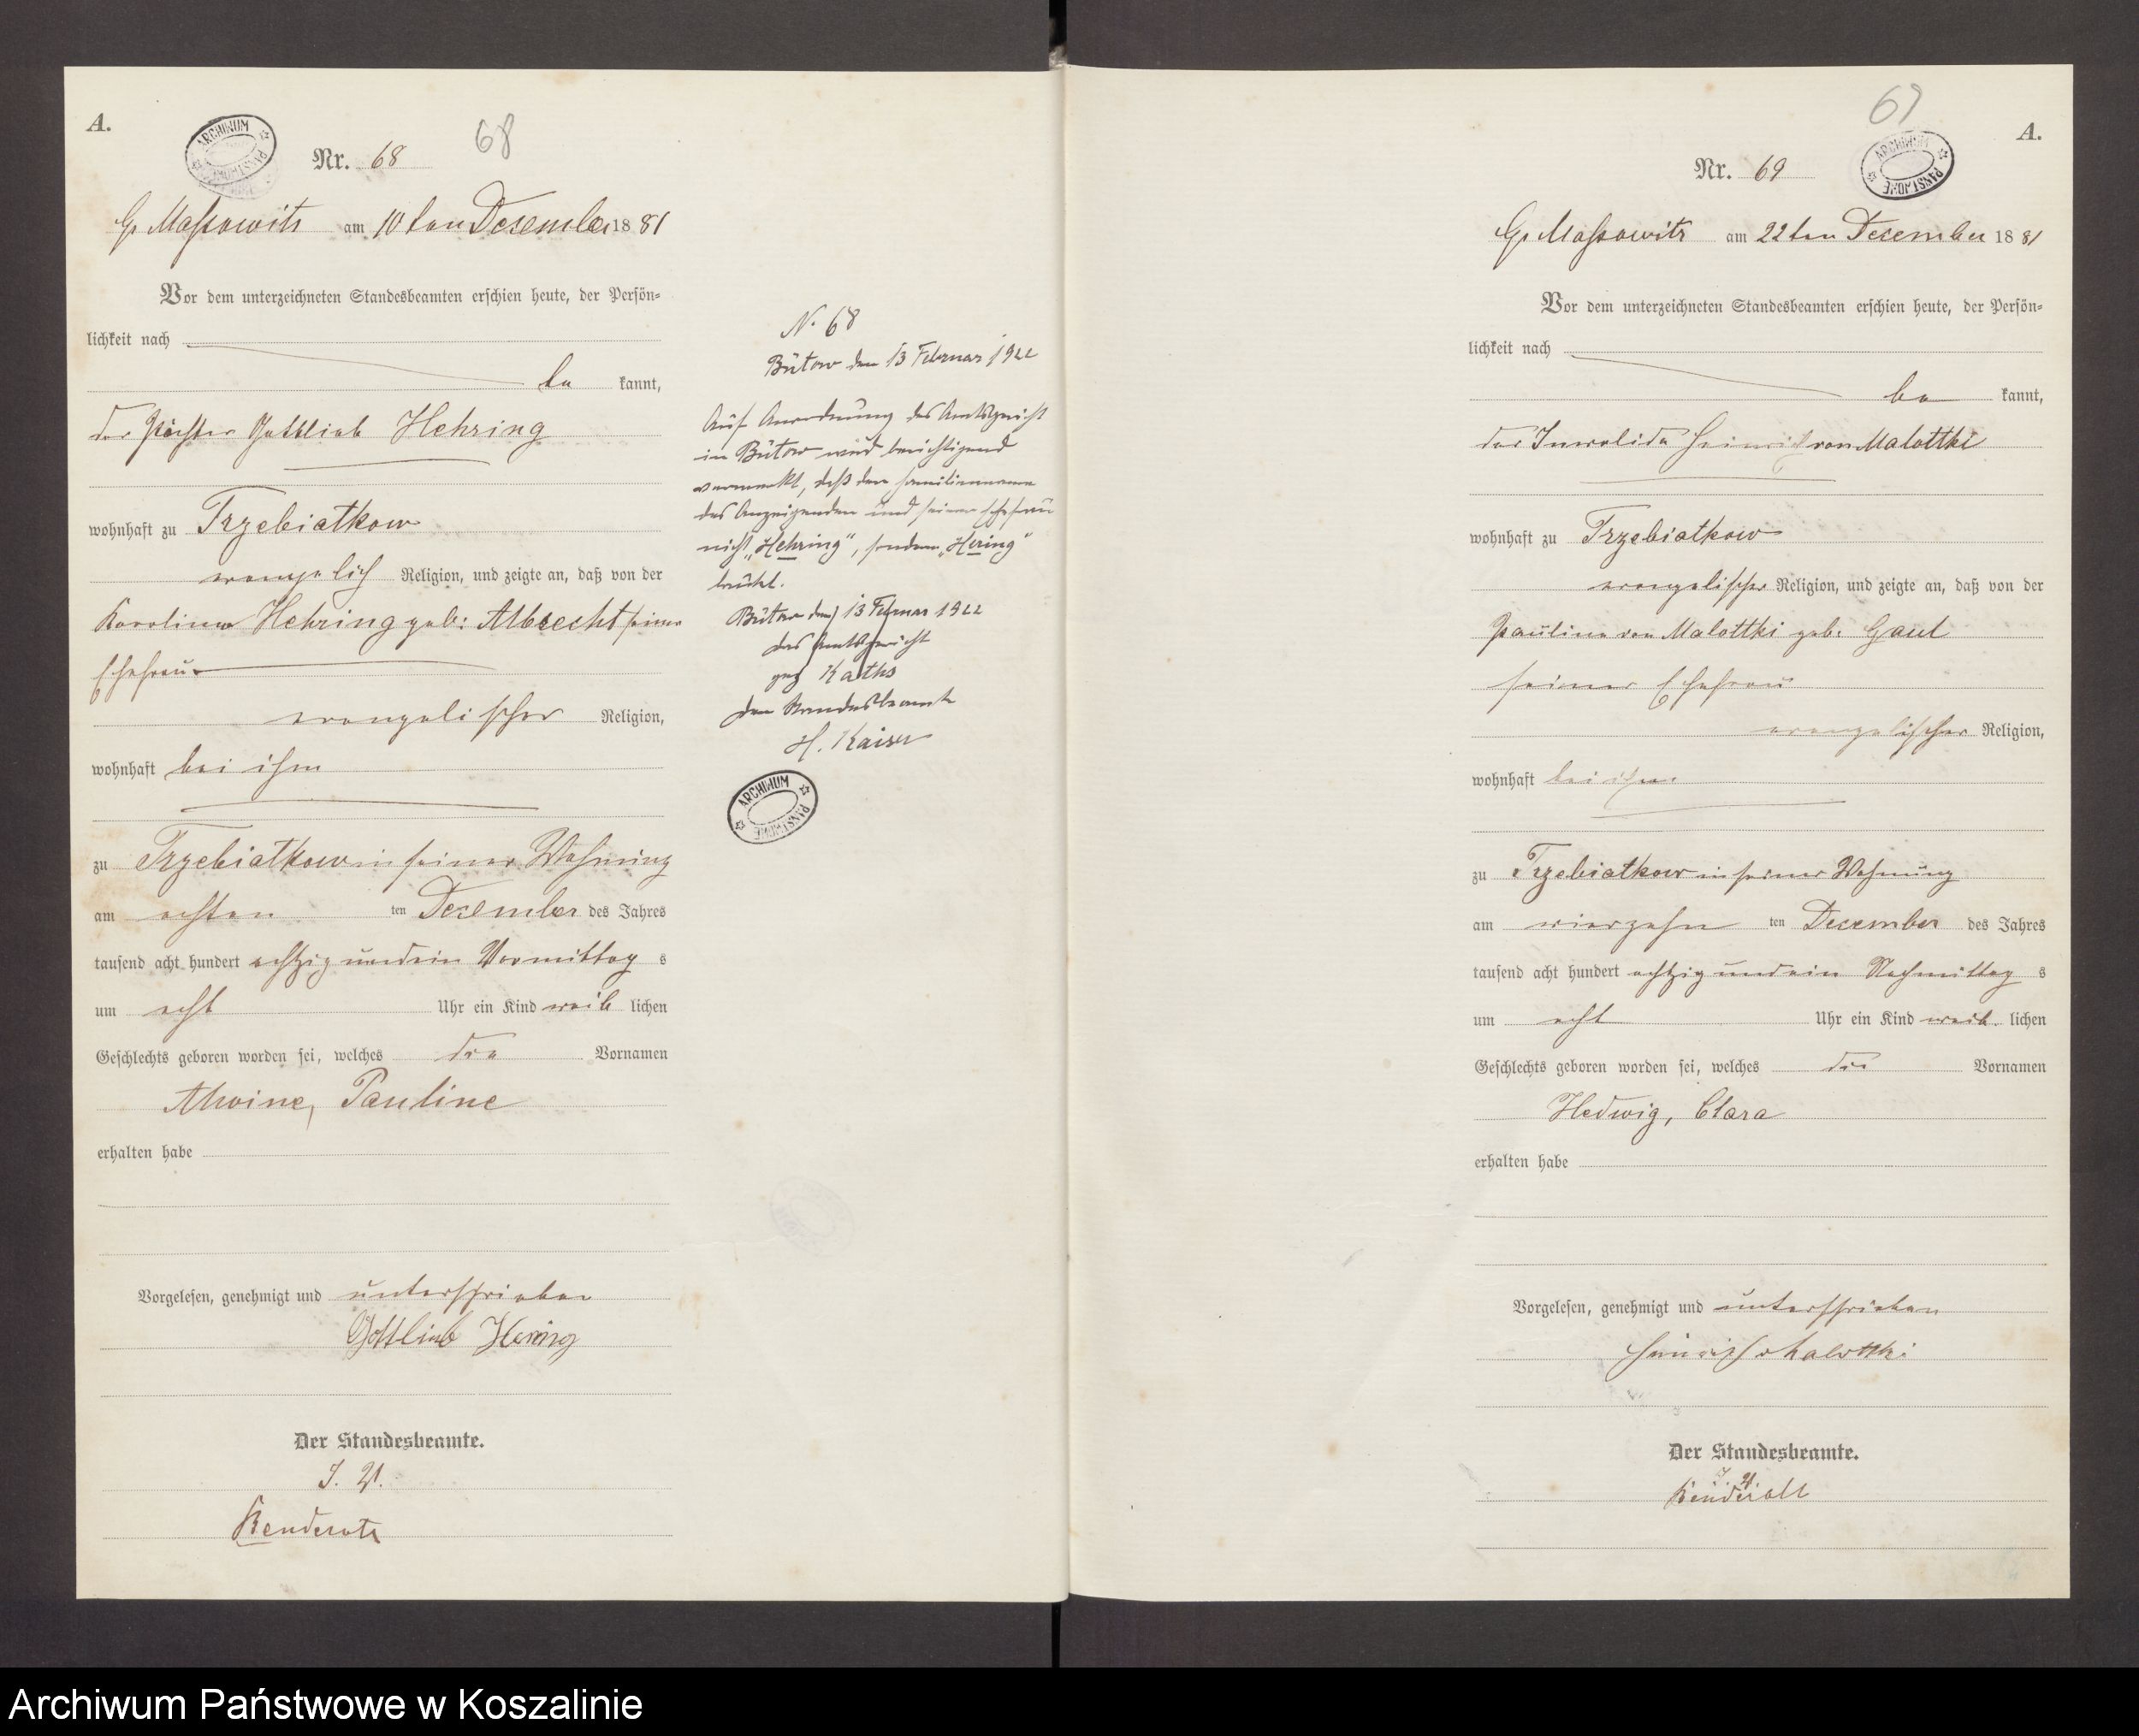 A.
ARCHIWUM PAŃSTWOWE
Nr. 68
68
Gr Massowitz am 10ten Dezember 1881
Vor dem unterzeichneten Standesbeamten erschien heute, der Persön-
lichkeit nach
be kannt,
der Pächter Gottlieb Hehring
wohnhaft zu Trzebiatkow
evangelisch Religion, und zeigte an, daß von der
Karoline Hehring geb: Albrecht seiner
Ehefrau
evangelischer Religion,
wohnhaft bei ihm
zu Trzebiatkow in seiner Wohnung
am achten ten Dezember des Jahres
tausend acht hundert achtzig und ein Vormittag s
um acht Uhr ein Kind weib lichen
Geschlechts geboren worden sei, welches die Vornamen
Alwine, Pauline
erhalten habe
Vorgelesen, genehmigt und unterschrieben
Gottlieb Hering
Der Standesbeamte.
I. V.
N. 68
Bütow den 13 Februar 1922
Auf Anordnung des Amtsgericht
in Bütow wird berichtigend
vermerkt, daß der Familienname
des Anzeigenden und seiner Ehefrau
nicht „Hehring", sondern „Hering"
lautet.
Bütow den 13 Februar 1922
Das Amtsgericht
gez Kaths
Der Standesbeamte
H. Kaiser
ARCHIWUM PAŃSTWOWE
A.
ARCHIWUM PAŃSTWOWE
Nr. 69
Gr Massowitz am 22ten Dezember 1881
Vor dem unterzeichneten Standesbeamten erschien heute, der Persön-
lichkeit nach
be kannt,
der Invalide Heinrich von Malottki
wohnhaft zu Trzebiatkow
evangelischer Religion, und zeigte an, daß von der
Pauline von Malottki geb: Gaul
seiner Ehefrau
evangelischer Religion,
wohnhaft bei ihm
zu Trzebiatkow in seiner Wohnung
am vierzehn ten December des Jahres
tausend acht hundert achtzig und ein Nachmittag s
um acht Uhr ein Kind weib lichen
Geschlechts geboren worden sei, welches die Vornamen
Hedwig, Clara
erhalten habe
Vorgelesen, genehmigt und unterschrieben
Heinrich v Malottki
Der Standesbeamte.
I. V.
Archiwum Państwowe w Koszalinie